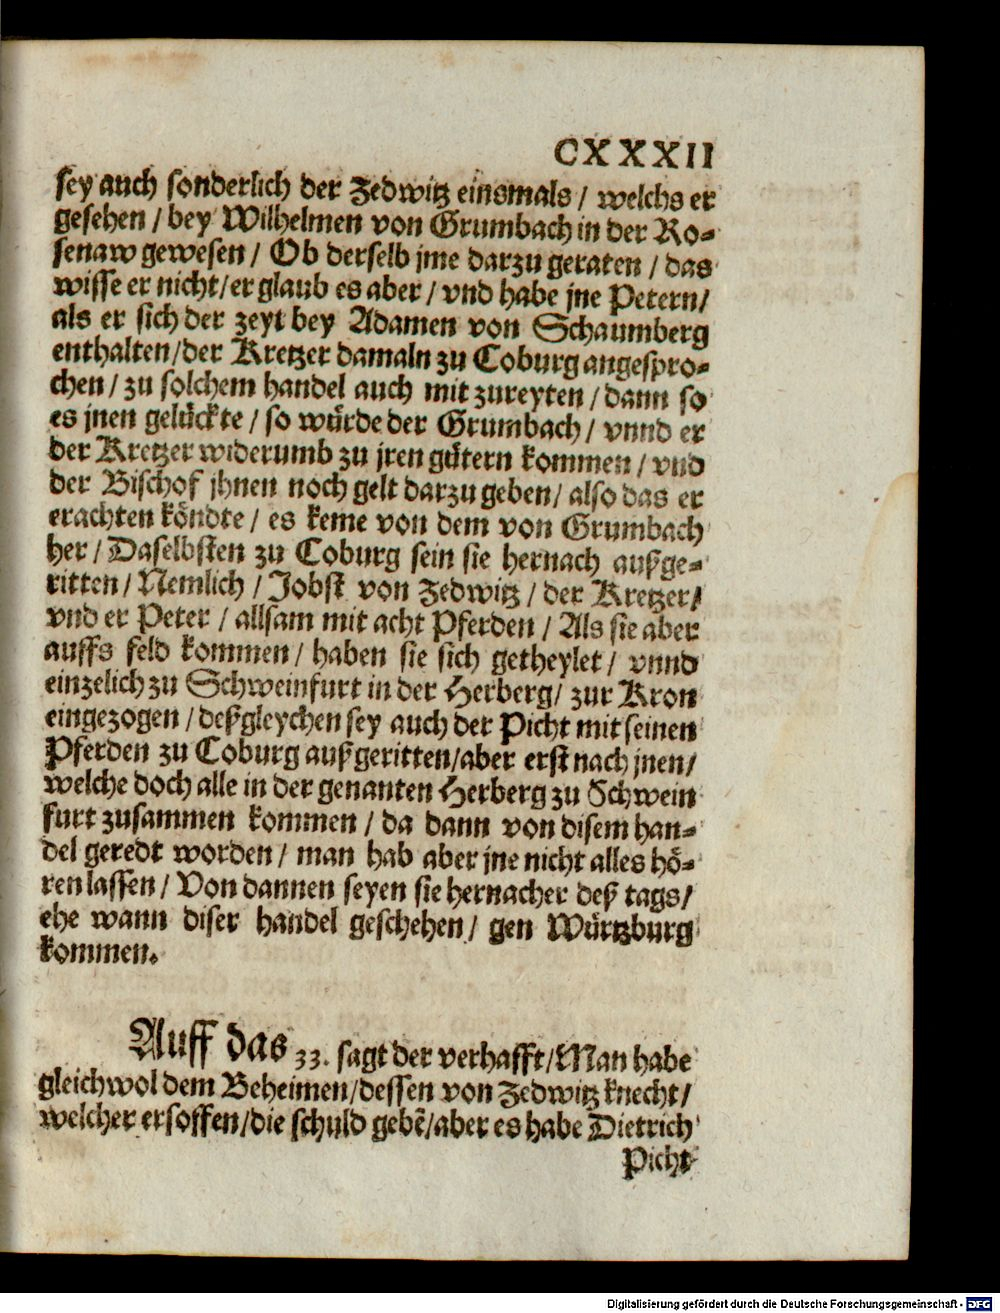 CXXXII
sey auch sonderlich der Zedwitz einsmals / welchs er
gesehen / bey Wilhelmen von Grumbach in der Ro-
senaw gewesen / Ob derselb jme darzu geraten / das
wisse er nicht/er glaub es aber / vnd habe jne Petern/
als er sich der zeyt bey Adamen von Schaumberg
enthalten/der Kretzer damaln zu Coburg angespro-
chen / zu solchem handel auch mit zureyten / dann so
es jnen gelückte / so würde der Grumbach / vnnd er
der Kretzer widerumb zu jren gütern kommen / vnd
der Bischof jhnen noch gelt darzu geben/ also das er
erachten köndte / es keme von dem von Grumbach
her / Daselbsten zu Coburg sein sie hernach außge-
ritten / Nemlich / Jobst von Zedwitz / der Kretzer/
vnd er Peter / allsam mit acht Pferden / Als sie aber
auffs feld kommen / haben sie sich getheylet / vnnd
einzelich zu Schweinfurt in der Herberg/ zur Kron
eingezogen / deßgleychen sey auch der Picht mit seinen
Pferden zu Coburg außgeritten/aber erst nach jnen/
welche doch alle in der genanten Herberg zu Schwein
furt zusammen kommen / da dann von disem han-
del geredt worden / man hab aber jne nicht alles hö-
ren lassen / Von dannen seyen sie hernacher deß tags/
ehe wann diser handel geschehen / gen Würtzburg
kommen.
Auff das 33. sagt der verhafft/Man habe
gleichwol dem Beheimen/dessen von Zedwitz knecht/
welcher ersoffen/die schuld gebē/aber es habe Dietrich
Picht
Digitalisierung gefördert durch die Deutsche Forschungsgemeinschaft - DFG